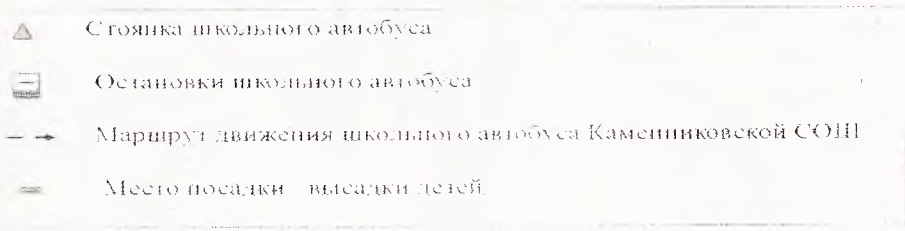 Стоянка школьного автобуса
Остановки школьного автобуса
Маршрут движения школьного автобуса Каменниковской СОШ
Место посадки высадки детей